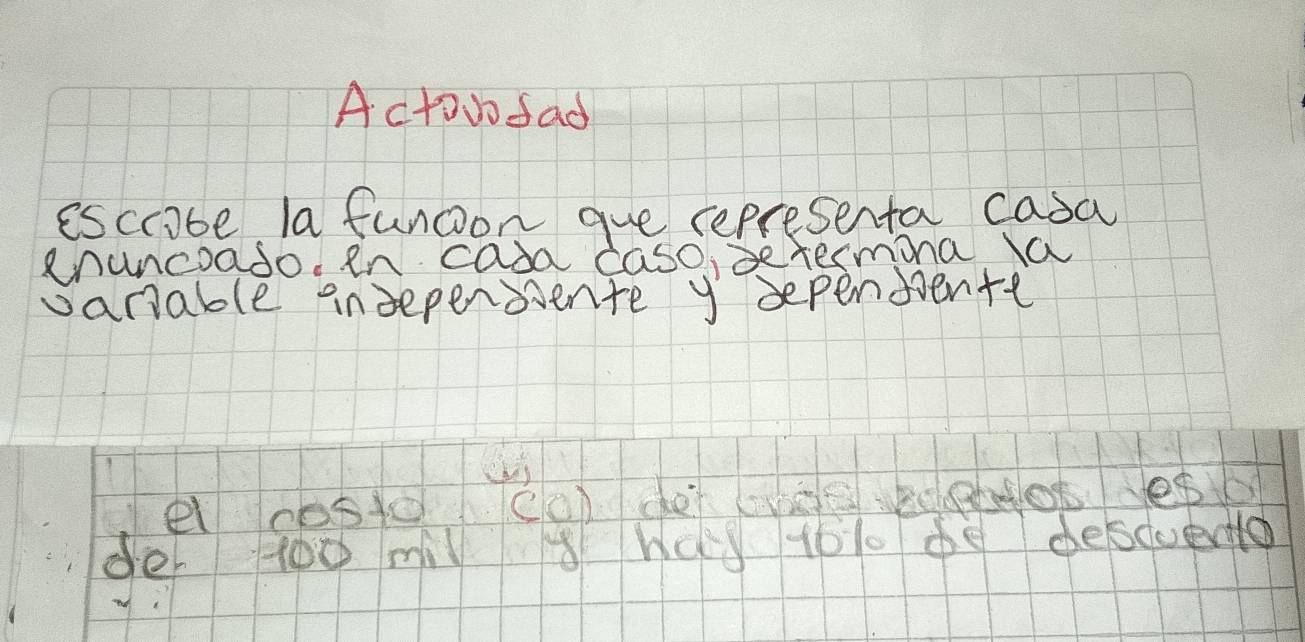 Actividad
Escribe la función que representa cada
enunciado. en cada caso, determina la
variable independiente y dependiente
el costo (c) de unos zapatos es
de 100 mil y hay 10% de descuento